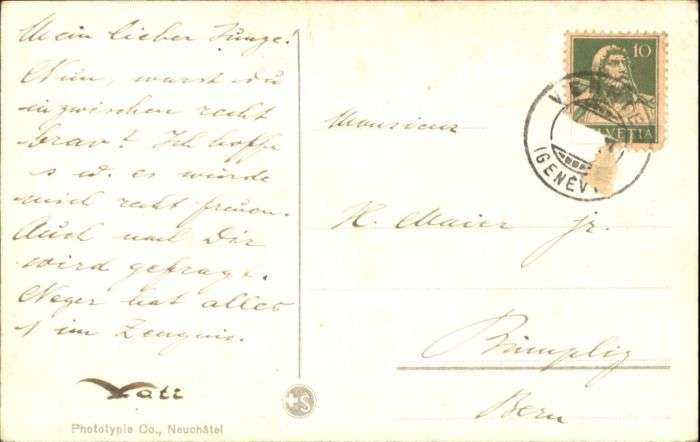 Mein lieber Junge!
Nun, warst du
inzwischen recht
brav? Ich hoffe
es u. es würde
mich recht freuen.
Auch nach Dir
wird gefragt.
Neger hat alles
1 im Zeugnis.
Vati
Phototypie Co., Neuchâtel
+S
10
HELVETIA
(GENÈV
Monsieur
K. Maier jr.
Bümpliz
Bern